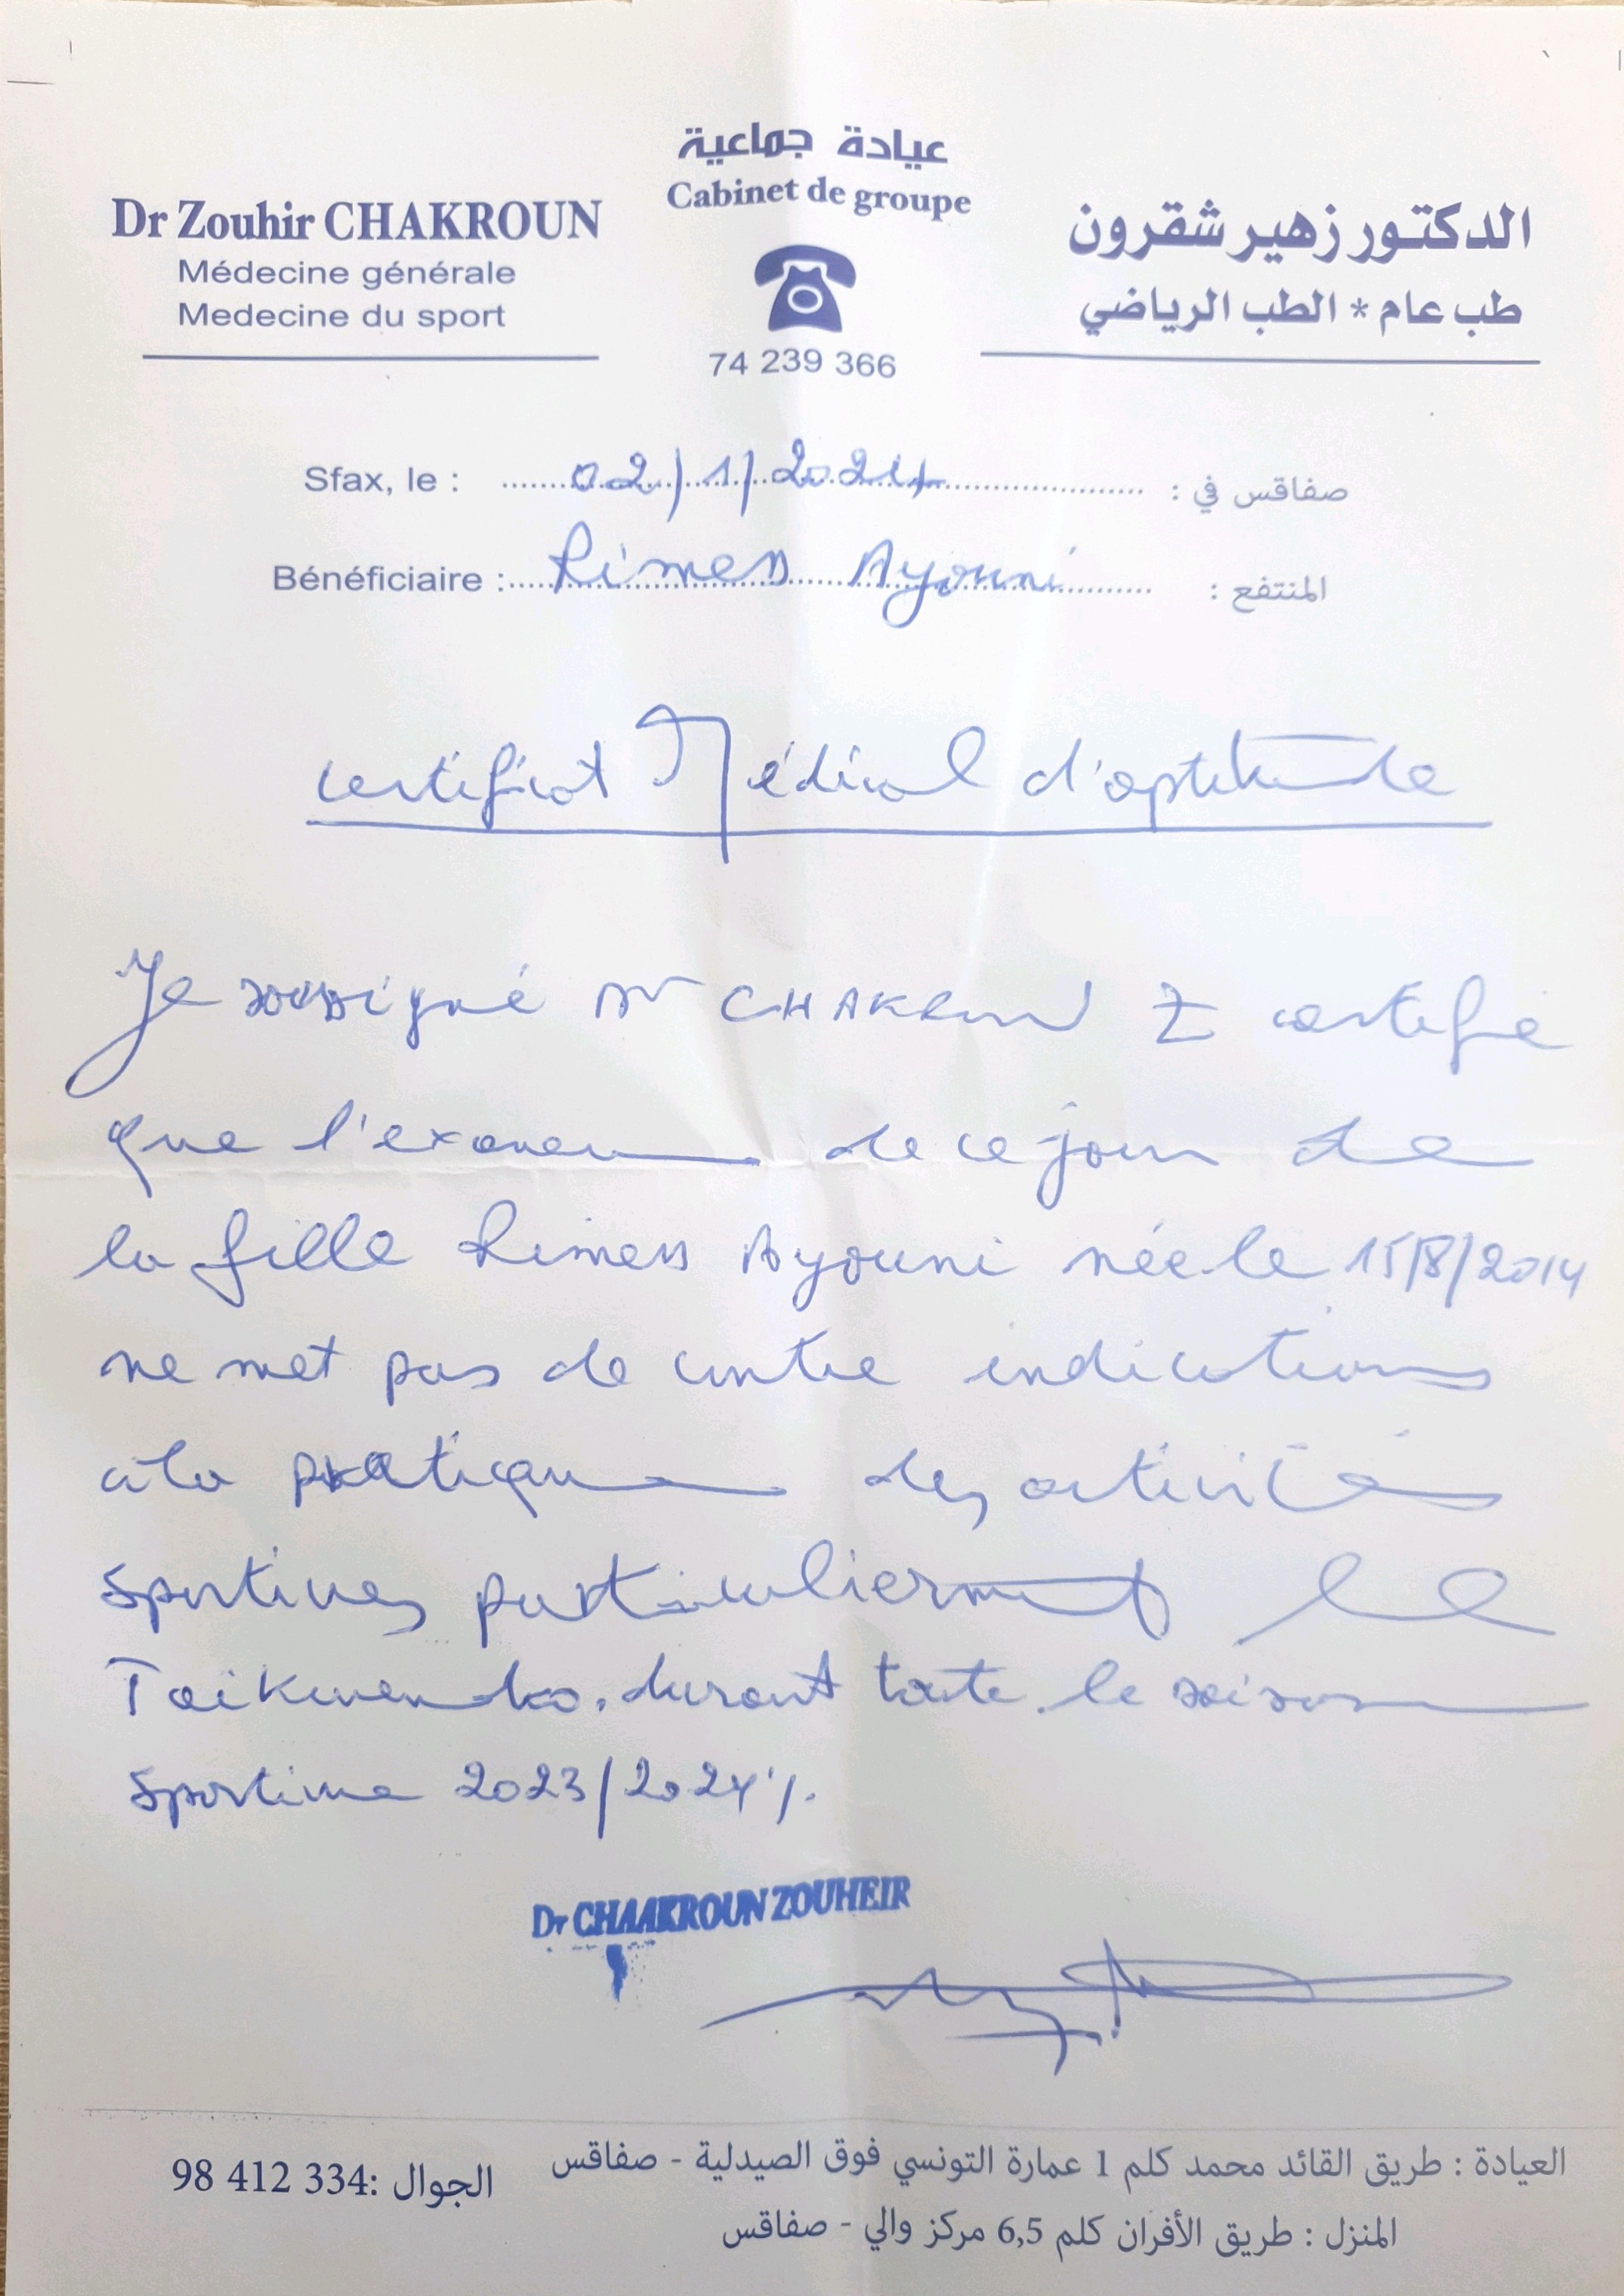 عيادة جماعية
Cabinet de groupe
Dr Zouhir CHAKROUN
Médecine générale
Medecine du sport
الدكتور زهير شقرون
طب عام * الطب الرياضي
74 239 366
Sfax, le : 02/1/2024 صفاقس في :
Bénéficiaire : Rimess Ayouni المنتفع :
certificat Médical d'aptitude
Je soussigné Dr CHAKROUN Z certifie
que l'examen de ce jour de
la fille Rimess Ayouni née le 15/8/2014
ne met pas de contre indications
a la pratique des activités
sportives particulierment le
Taikwendo. durant toute la saison
sportive 2023/2024 ./.
Dr CHAAKROUN ZOUHEIR
العيادة : طريق القائد محمد كلم 1 عمارة التونسي فوق الصيدلية - صفاقس
الجوال :334 412 98
المنزل : طريق الأفران كلم 6,5 مركز والي - صفاقس